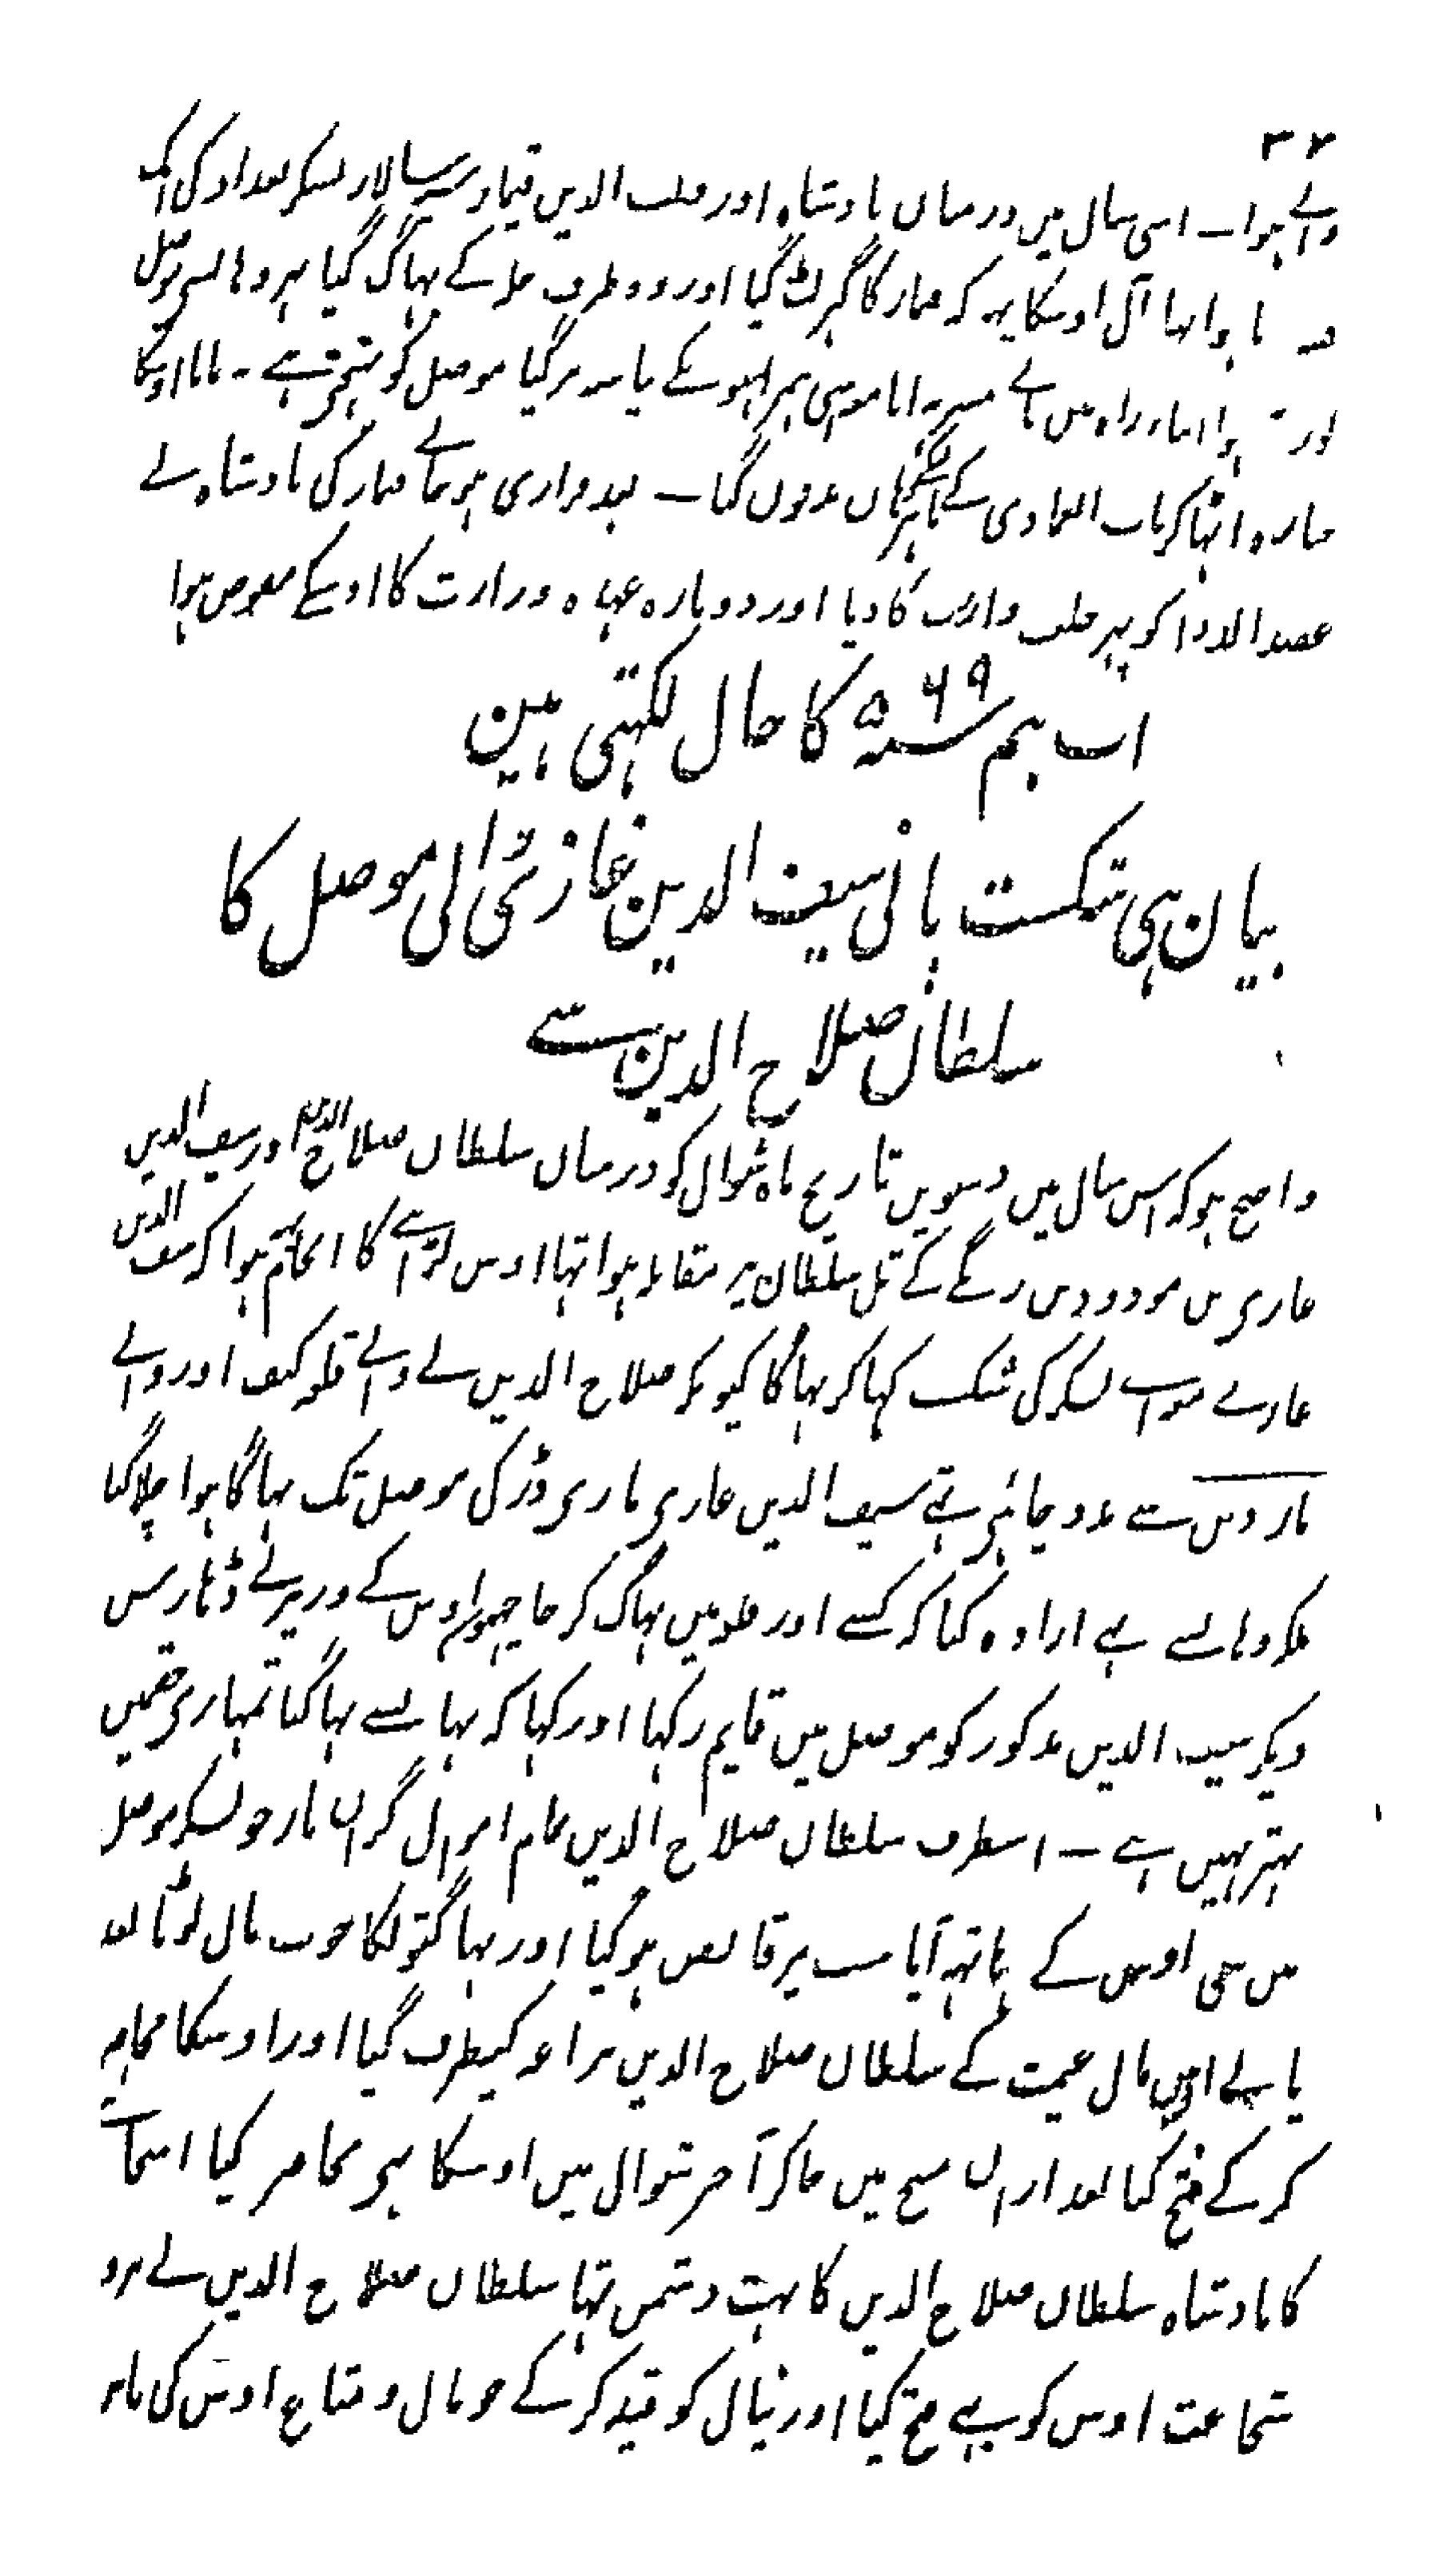 ۳۲
واقع ہوا ۔ اسی سال میں درمیان بادشاہ اور قطب الدین قیماز سپہ سالار لشکر بغداد کی ایک
ہوا تہا آل اوسکا یہ کہ قیماز کا گہر لٹ گیا اور وہ طرف حلہ کے بہاگ گیا پہر وہانسی موصل
ہوا تہا راہ میں ہمراہیوں کے پیاسہ مر گیا موصل کو
کے باہر مدفون ہوا ۔ بعد فراری ہو جانے قیماز کی بادشاہ نے
عضد الدولہ کو پہر خلعت وزارت کا دیا اور دوبارہ عہدہ وزارت کا اوسکے مفوض ہوا
اب ہم سنہ ۵۶۹ کا حال لکہتی ہین
بیان ہی شکست پانی سیف الدین غازی والی موصل کا
سلطان صلاح الدین سے
واضح ہو کہ اس سال میں دسویں تاریخ ماہ شوال کو درمیان سلطان صلاح الدین اور سیف الدین
غازی بن مودود بن زنگے کے تل سلطان پر مقابلہ ہوا تہا اوس لڑائے کا انجام یہ ہوا کہ سیف الدین
غازے معہ اپنے لشکر کی شکست کہا کر بہاگا کیونکر صلاح الدین نے والے قلعہ کیفا اور والے
ماردین سے مدد چاہی تہے سیف الدین غازی ماری ڈر کی موصل تک بہاگا ہوا چلا گیا
بلکہ وہانسے بہے ارادہ کیا کہ کسے اور قلعہ میں بہاگ کر جا چہپوں اوس کے وزیر نے ڈہارس
دیکر سیف الدین مذکور کو موصل میں قایم رکہا اور کہا کہ یہانسے بہاگنا تمہاری حق میں
بہتر نہیں ہے ۔ اسطرف سلطان صلاح الدین تمام اموال گراں بار جو لشکر موصل
میں سی اوس کے ہاتہہ آیا سب پر قابض ہو گیا اور بہاگتونکا خوب مال لوٹا بعد
پانے اس مال غنیمت کے سلطان صلاح الدین بزاعہ کیطرف گیا اور اوسکا محاصرہ
کر کے فتح کیا بعد ازاں منبج میں جا کر آخر شوال میں اوسکا بہی محاصرہ کیا اسجائے
کا بادشاہ سلطان صلاح الدین کا بہت دشمن تہا سلطان صلاح الدین نے بزور
شجاعت اوس کو بہے فتح کیا اور نیال کو قید کر کے جو مال و متاع اوس کی پاس